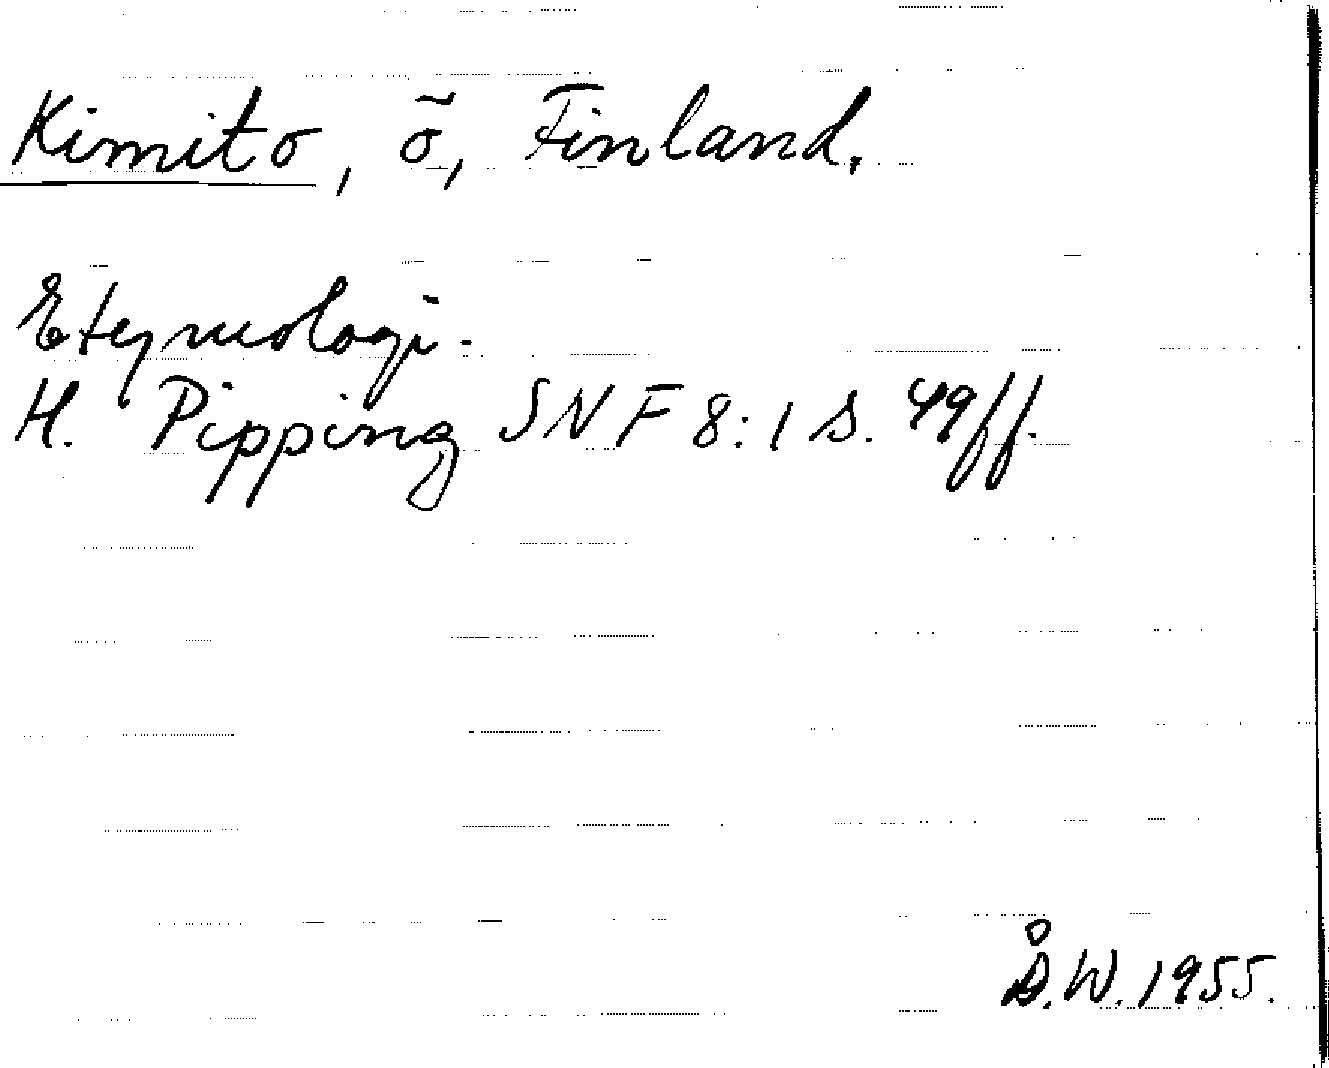 Kimito, ö, Finland.
Etymologi.
H. Pipping SNF 8:1 s. 49ff.
Å.W. 1955.